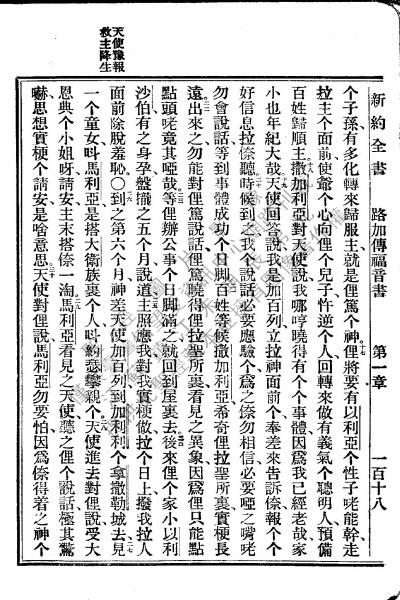 新約全書　路加傳福音書　第一章　一百十八
个子孫有多化轉來歸服主就是俚篤个神俚將要有以利亞个性子咾能幹走
拉主个面前使爺个心向俚个兒子忤逆个人回轉來做有義氣个聰明人預備
百姓歸順主撒加利亞對天使說我哪哼曉得有个事體因爲我已經老哉家
小也年紀大哉天使回答說我是加百列立拉神面前个奉差來告訴倷報个个
好信息拉倷聽時候到之我个說話必要應驗个爲之倷勿相信必要啞之嘴咾
勿會說話等到事體成功个日脚百姓等候撒加利亞希奇俚拉聖所裏實梗長
遠出來之勿能對俚篤說話俚篤曉得俚拉聖所裏看見之異象因爲俚只能點
點頭咾竟其啞哉等俚辦公事个日脚滿之就回到屋裏去後來俚个家小以利
沙伯有之身孕盤攏之五个月說道主照應我對我實梗做拉个日上撥我拉人
面前除脫羞恥○到之第六个月神差天使加百列到加利利个拿撒勒城去見
一个童女呌馬利亞是搭大衛族裏个人呌約瑟攀親个天使進去對俚說受大
恩典个小姐呀請安主末搭倷一淘馬利亞看見之天使聽之俚个說話極其驚
嚇思想實梗个請安是啥意思天使對俚說馬利亞勿要怕因爲倷得着之神个
天使豫報
救主降生